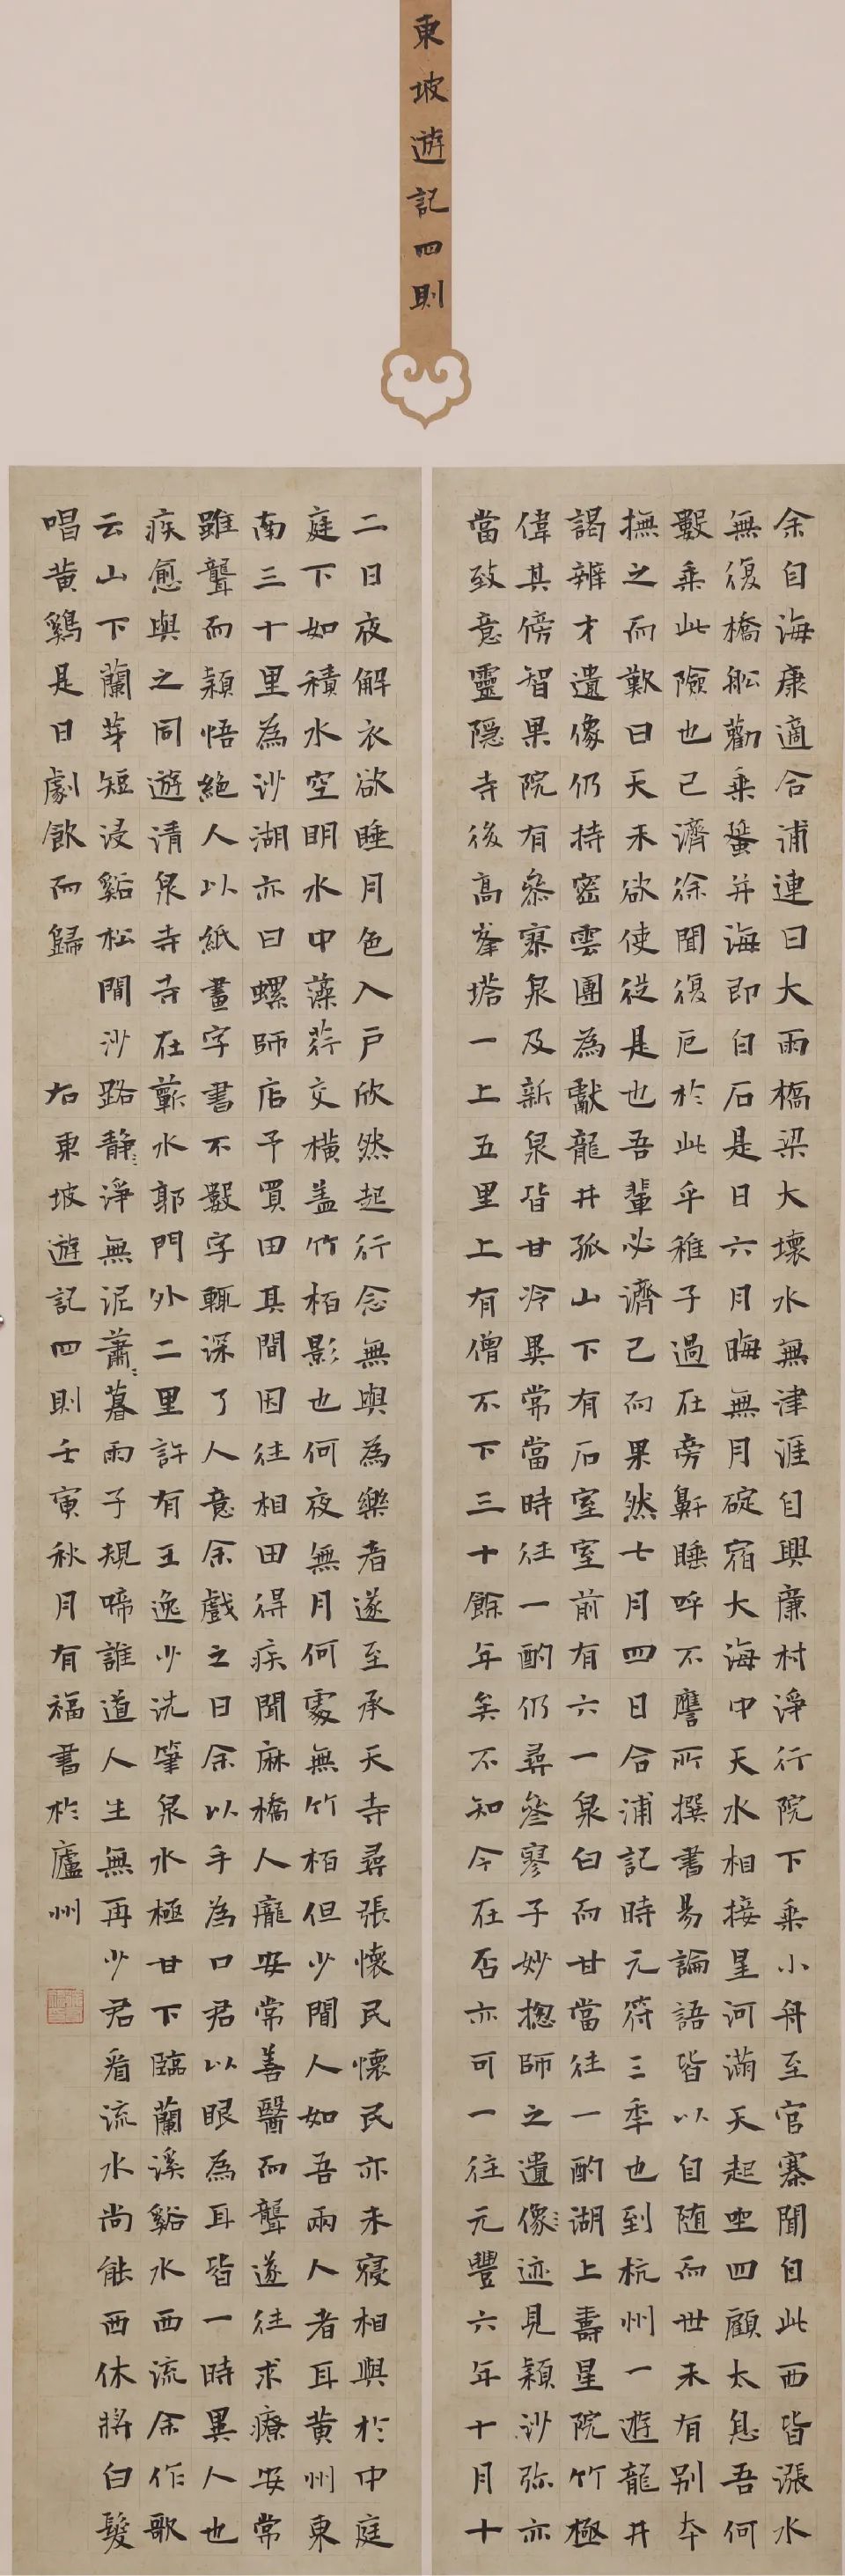 東坡遊記四則
余自海康適合浦連日大雨橋梁大壞水無津涯自興廉村淨行院下乘小舟至官寨聞自此西皆漲水
無復橋舩勸乘蜑并海即白石是日六月晦無月碇宿大海中天水相接星河滿天起坐四顧太息吾何
數乘此險也已濟徐聞復厄於此乎稚子過在旁鼾睡呼不應所撰書易論語皆以自随而世未有别本
撫之而歎曰天未欲使從是也吾輩必濟已而果然七月四日合浦記時元符三年也到杭州一遊龍井
謁辨才遺像仍持密雲團為獻龍井孤山下有石室室前有六一泉白而甘當往一酌湖上壽星院竹極
偉其傍智果院有參寥泉及新泉皆甘冷異常當時往一酌仍尋參寥子妙揔師之遺像〻迹見穎沙弥亦
當致意靈隱寺後高峯塔一上五里上有僧不下三十餘年矣不知今在否亦可一往元豐六年十月十
二日夜解衣欲睡月色入戶欣然起行念無與為樂者遂至承天寺尋張懷民懷民亦未寢相與於中庭
庭下如積水空明水中藻荇交橫盖竹栢影也何夜無月何處無竹栢但少閒人如吾兩人者耳黄州東
南三十里為沙湖亦曰螺師店予買田其間因往相田得疾聞麻橋人龐安常善醫而聾遂往求療安常
雖聾而穎悟絶人以紙畫字書不數字輒深了人意余戲之曰余以手為口君以眼為耳皆一時異人也
疾愈與之同遊清泉寺寺在蘄水郭門外二里許有王逸少洗筆泉水極甘下臨蘭溪谿水西流余作歌
云山下蘭芽短浸谿松間沙路静〻淨無泥蕭〻暮雨子規啼誰道人生無再少君看流水尚能西休將白髮
唱黄鷄是日劇飲而歸 右東坡遊記四則壬寅秋月有福書於廬州